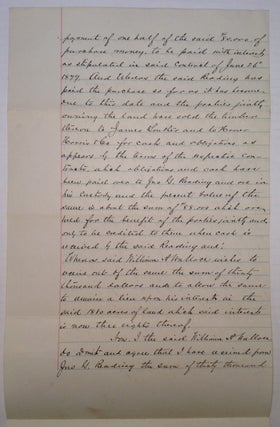 payment of one half of the said $
purchase money, to be paid with interest
as stipulated in said contract of June
1877. And Whereas the said Reading has
paid the purchase so far as it has become
due to this date and the parties jointly
owning the land have sold the timber
thereon to James and to
& Co for cash and obligations as
appears by the terms of the respective con-
tracts, which obligations and cash have
been paid over to Jno G. Reading and are in
his custody and the present value of the
same is about the sum of which are
held for the benefit of the parties jointly and
only to be credited to them when cash is
received by the said Reading and:
Whereas said William A Wallace wishes to
receive out of the same the sum of thirty
thousand dollars and to allow the same
to remain a lien upon his interests in the
said 1810 acres of land which said interest
is now three eights thereof.
Now, I the said William A Wallace
do and agree that I have received from
Jno G. Reading the sum of thirty thousand